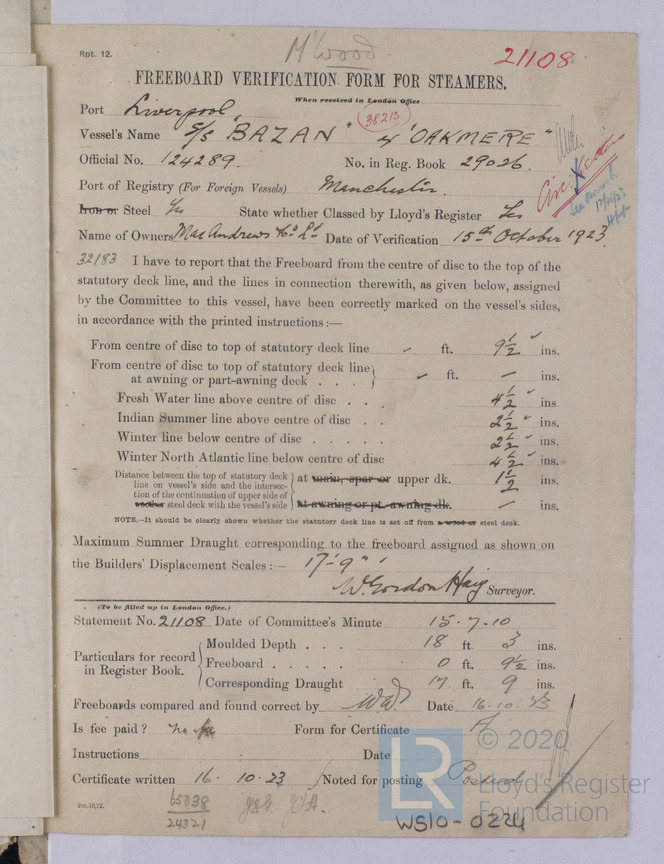 Rpt. 12.
McWood
21108
FREEBOARD VERIFICATION FORM FOR STEAMERS.
When received in London Office
Port Liverpool
38213
Vessel's Name S/S "BAZAN" "OAKMERE"
Official No. 124289. No. in Reg. Book 29026.
Port of Registry (For Foreign Vessels) Manchester.
Iron or Steel Yes State whether Classed by Lloyd's Register Yes
Name of Owners MacAndrews & Co Ld Date of Verification 15th October 1923.
32183 I have to report that the Freeboard from the centre of disc to the top of the
statutory deck line, and the lines in connection therewith, as given below, assigned
by the Committee to this vessel, have been correctly marked on the vessel's sides,
in accordance with the printed instructions:—
From centre of disc to top of statutory deck line - ft. 9 1/2 ins.
From centre of disc to top of statutory deck line
at awning or part-awning deck . . . - ft. - ins.
Fresh Water line above centre of disc . . . 4 1/2 ins.
Indian Summer line above centre of disc . . 2 1/2 ins.
Winter line below centre of disc . . . . . 2 1/2 ins.
Winter North Atlantic line below centre of disc 4 1/2 ins.
Distance between the top of statutory deck line on vessel's side and the intersection of the continuation of upper side of wooden steel deck with the vessel's side
at main, spar or upper dk. 1 1/2 ins.
at awning or pt. awning dk. - ins.
NOTE.—It should be clearly shown whether the statutory deck line is set off from a wood or steel deck.
Maximum Summer Draught corresponding to the freeboard assigned as shown on
the Builders' Displacement Scales:— 17'-9"
W. Gordon Haig Surveyor.
(To be filled up in London Office.)
Statement No. 21108 Date of Committee's Minute 15-7-10
Particulars for record in Register Book.
Moulded Depth . . . . 18 ft. 3 ins.
Freeboard . . . . . 0 ft. 9 1/2 ins.
Corresponding Draught 17 ft. 9 ins.
Freeboards compared and found correct by Date 16.10.23
Is fee paid? No fee Form for Certificate A
Instructions Date
Certificate written 16. 10. 23 Noted for posting Posted
2m,10,22.
65038
24321
WS10-0224
LR
© 2020
Lloyd's Register
Foundation